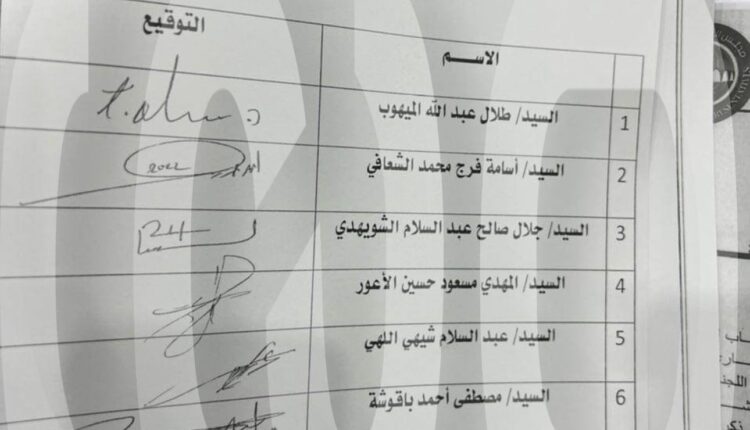 الاسم التوقيع
1 السيد/ طلال عبد الله الميهوب
2 السيد/ أسامة فرج محمد الشعافي
3 السيد/ جلال صالح عبد السلام الشويهدي
4 السيد/ المهدي مسعود حسين الأعور
5 السيد/ عبد السلام شيهي اللهي
6 السيد/ مصطفى أحمد باقوشة